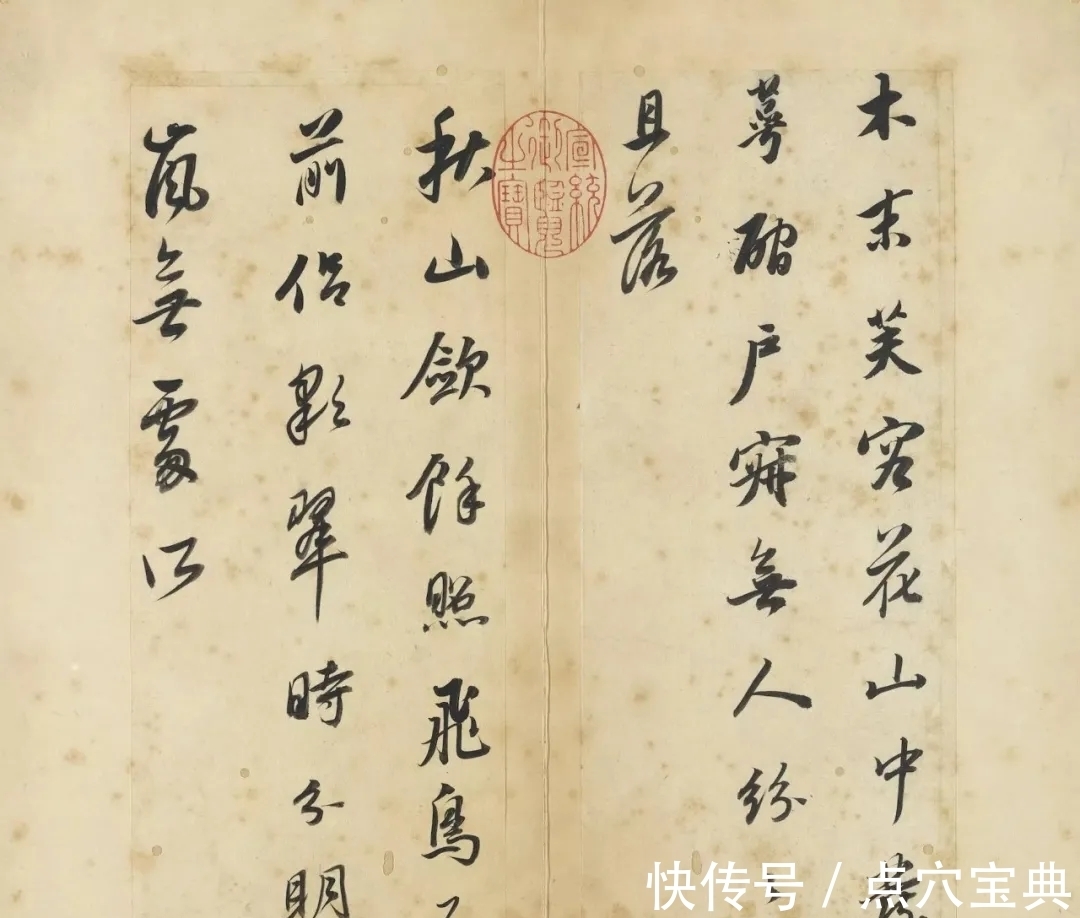 木末芙容花山中發
萼磵戶寂無人紛
且落
宣統御覽之寶
秋山歛餘照飛鳥
前侶彩翠時分明
嵐無處所
快传号 / 点穴宝典